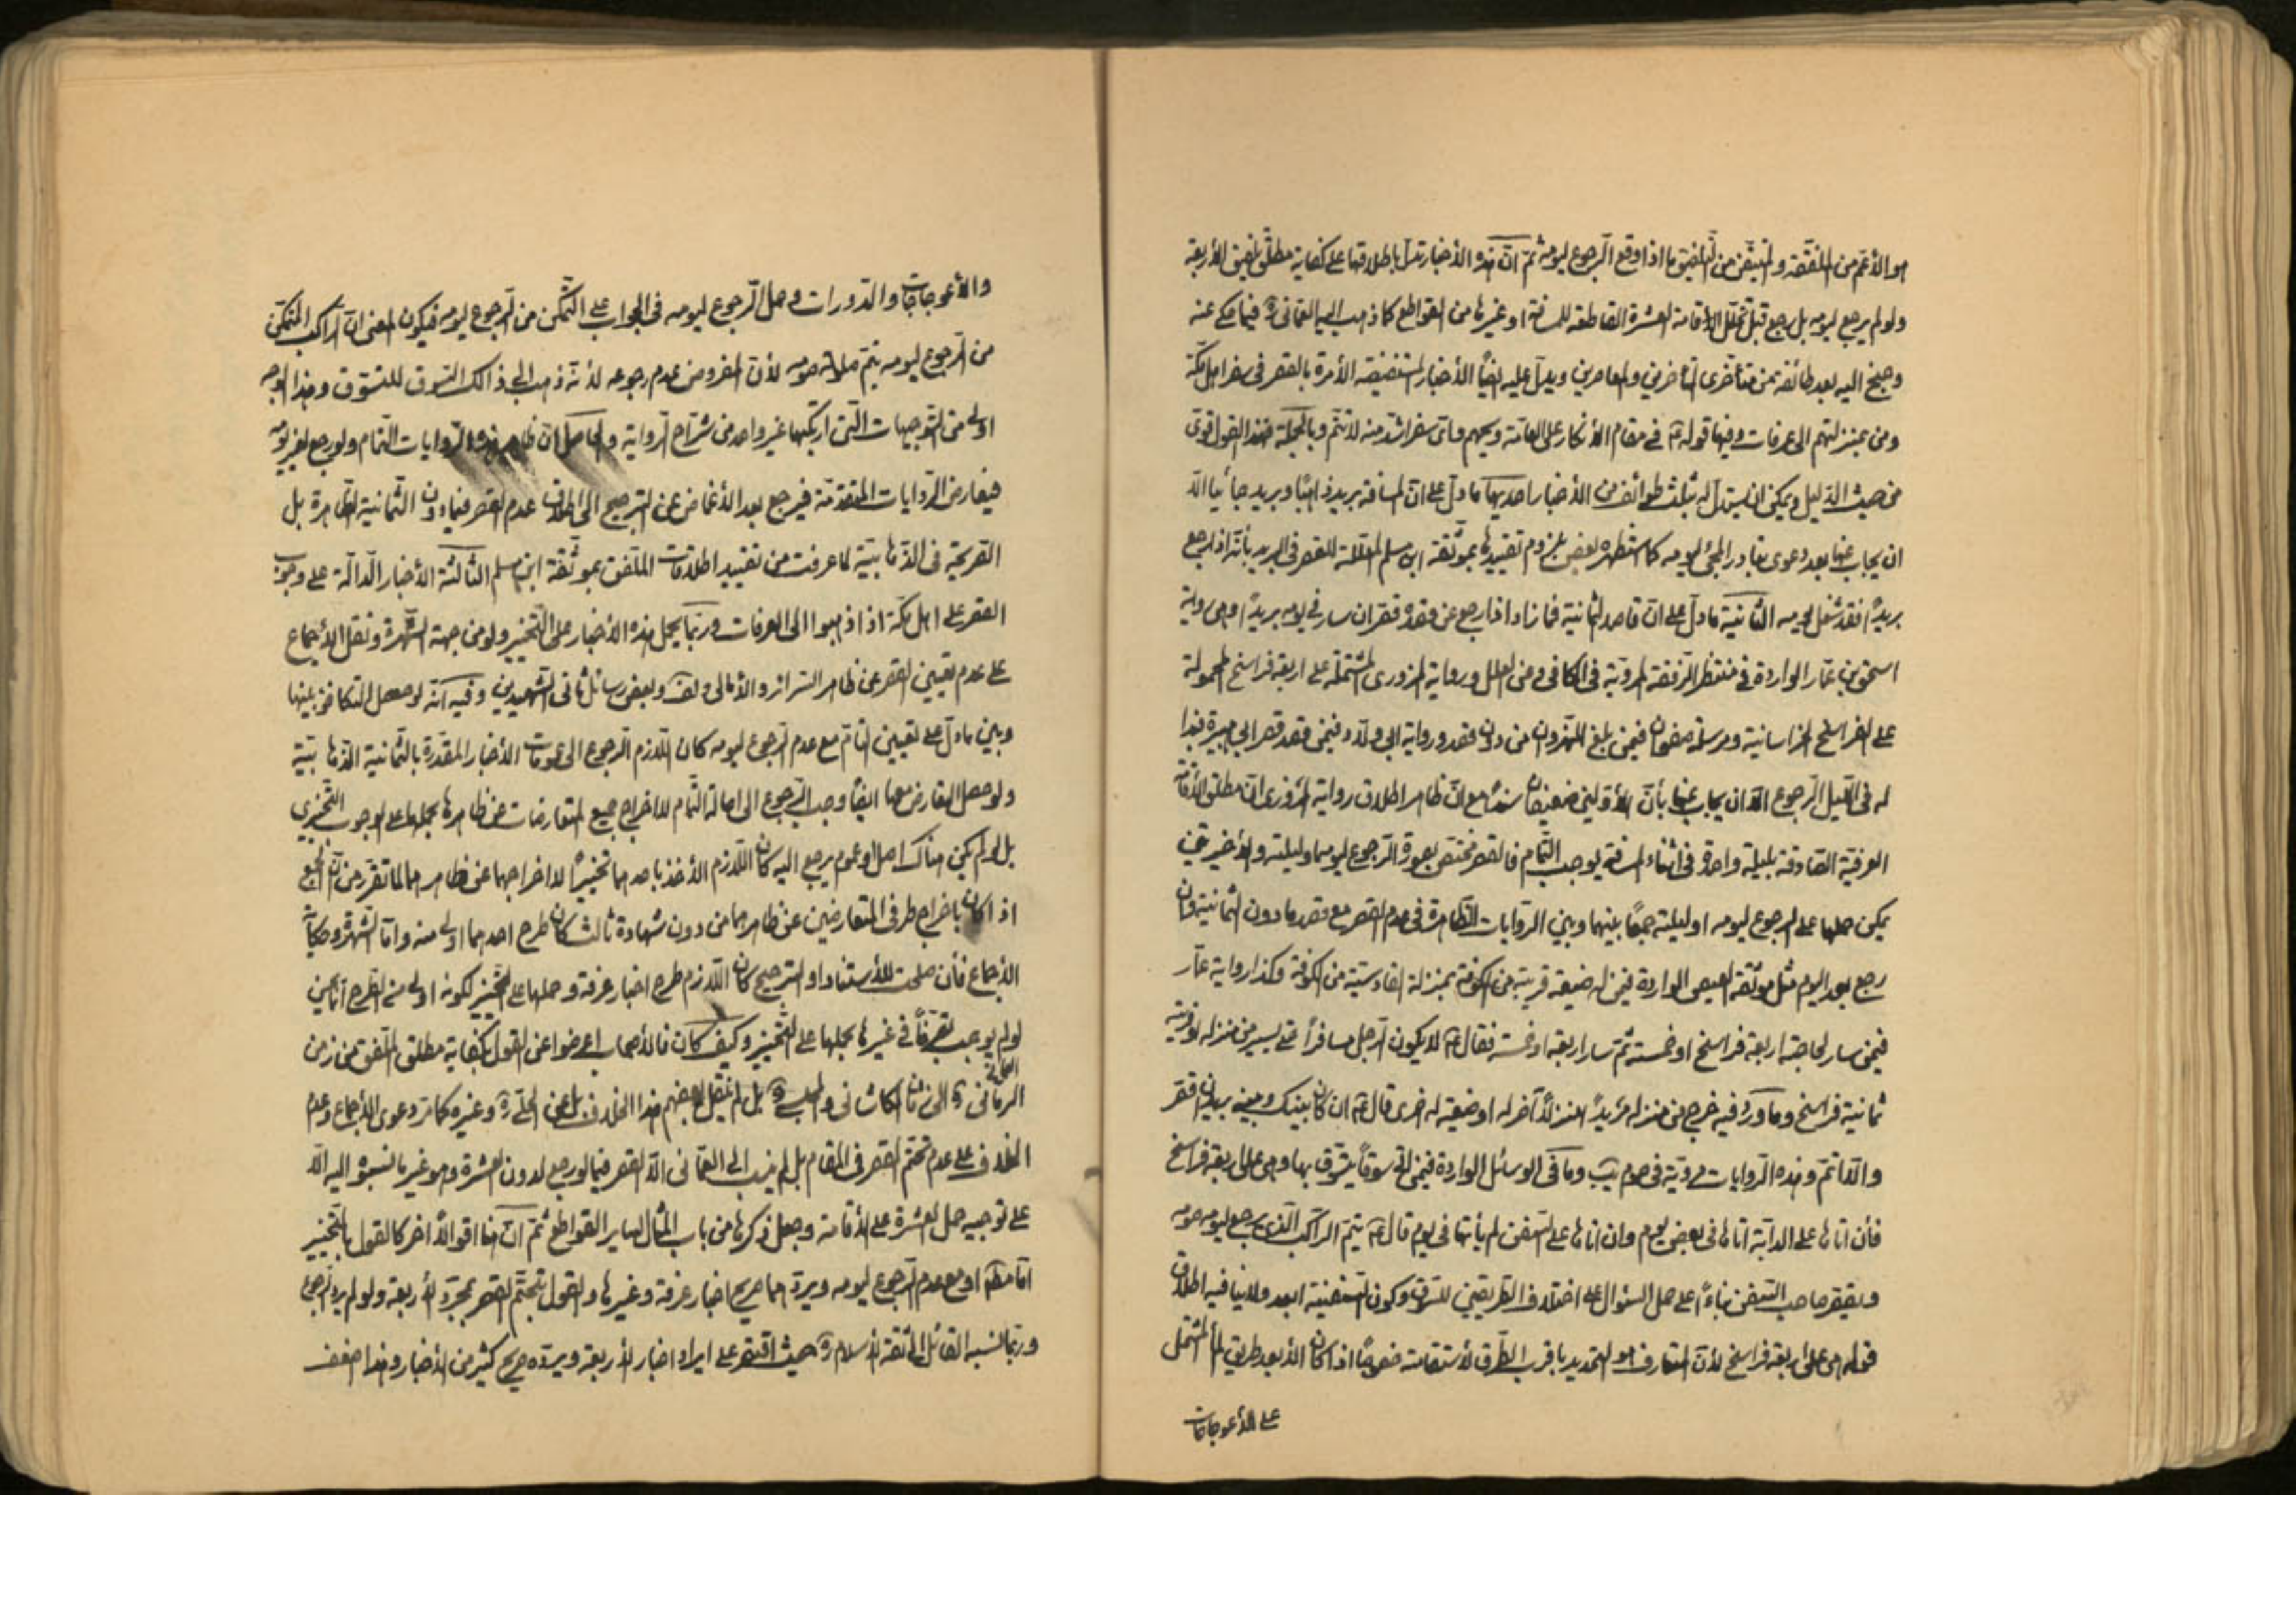 هو الأعم من الملفقة والمتيقن من التلفيق ما اذا وقع الرجوع ليومه ثم ان هذه الأخبار تدل باطلاقها على كفاية مطلق تلفيق الأربعة
ولو لم يرجع ليومه بل رجع قبل تخلل الاقامة العشرة القاطعة للمسافة او غيرها من القواطع كما ذهب اليه العماني ره فيما حكى عنه
وجنح اليه بعد طائفة من متأخرى المتأخرين والمعاصرين ويدل عليه ايضًا الأخبار المستفيضة الأمرة بالقصر فى سفر اهل مكة
ومن بمنزلتهم الى عرفات وفيها قوله ع فى مقام الأنكار على العامة ويحهم واى سفر اشد منه لا تتم وبالجملة فهذا القول قوى
من حيث الدليل ويمكن ان يستدل له بثلث طوائف من الأخبار احديها ما دل على ان المسافة بريد ذاهبًا وبريد جائيًا الا
ان يجاب عنها بعد دعوى تبادر المجئ ليومه كما استظهره بعض بلزوم تقييدها بموثقة ابن مسلم المعللة للقصر فى البريد بأنه اذا رجع
بريدًا فقد شغل يومه الثانية ما دل على ان قاصد الثمانية فما زاد اذا رجع عن قصده قصر ان سار فى يومه بريدًا وهى رواية
اسحق بن عمار الواردة فى منتظر الرفقة المروية فى الكافى وعن العلل ورواية المروزى المشتملة على اربعة فراسخ المحمولة
على الفراسخ الخراسانية ومرسلة صفوان فيمن بلغ النهروان من دون قصد ورواية ابى ولاد فيمن قصد قصر ابن هبيرة فبدا
له فى الليل الرجوع الا ان يجاب عنها بأن الأولين ضعيفان سندًا مع ان ظاهر اطلاق رواية المروزى ان مطلق الأقامة
العرفية الصادقة بليلة واحدة فى اثناء المسافة يوجب التمام فالقصر مختص بصورة الرجوع ليومه او ليلته والأخيرتين
يمكن حملها على الرجوع ليومه او ليلته جمعًا بينهما وبين الروايات الظاهرة فى عدم القصر مع قصد ما دون الثمانية وان
رجع بعد اليوم مثل موثقة العيص الواردة فيمن له ضيعة قريبة من الكوفة بمنزلة القادسية من الكوفة وكذا رواية عمار
فيمن سار لحاجته اربعة فراسخ او خمسة ثم سار اربعة او خمسة فقال ع لا يكون الرجل مسافرًا حتى يسير من منزله او قريته
ثمانية فراسخ وما ورد فيه خرج من منزله يريد منزلًا آخر له او ضيعة له اخرى قال ع ان كان بينك وبينه بريدان قصر
والا اتم وهذه الروايات مروية فى صوم يب وما فى الوسائل الواردة فيمن اتى سوقًا يتسوق بها وهى على اربعة فراسخ
فأن اتاها على الدابة اتاها فى بعض يوم وان اتاها على السفن لم يأتها فى يوم قال ع يتم الراكب الذى يرجع ليومه صومه
ويقصر صاحب السفن بناءً على حمل السؤال على اختلاف الطريقين للسوق وكون السفينة ابعد ولا ينافيه اطلاق
قوله هى على اربعة فراسخ لأن المتعارف هو التحديد باقرب الطرق لأستقامته خصوصًا اذا كان الأبعد طريق الماء المشتمل
على الأعوجاجات
والأعوجاجات والدورات وحمل الرجوع ليومه فى الجواب على التمكن من الرجوع ليومه فيكون المعنى ان الراكب المتمكن
من الرجوع ليومه يتم صلوته وصومه لأن المفروض عدم رجوعه لأنه ذهب الى ذالك السوق للتسوق وهذا الوجه
اولى من التوجيهات التى ارتكبها غير واحد من شراح الرواية والحاصل ان ظاهر هذه الروايات التمام ولو رجع لغير يومه
فيعارض الروايات المتقدمة فيرجع بعد الأغماض عن الترجيح الى اطلاق عدم القصر فيما دون الثمانية الظاهرة بل
الصريحة فى الذهابية لما عرفت من تقييد اطلاقات الملفق بموثقة ابن مسلم الثالثة الأخبار الدالة على وجوب
القصر على اهل مكة اذا ذهبوا الى العرفات وربما يحمل هذه الأخبار على التخيير ولو من جهة الشهرة ونقل الأجماع
على عدم تعيين القصر عن ظاهر السرائر والأمالى وبعض رسائل ثانى الشهيدين وفيه انه لو حصل التكافؤ بينها
وبين ما دل على تعيين التمام مع عدم الرجوع ليومه كان اللازم الرجوع الى عمومات الأخبار المقدرة بالثمانية الذهابية
ولو حصل التعارض معها ايضًا وجب الرجوع الى اصالة التمام لا اخراج جميع المتعارضات عن ظاهرها بحملها على الوجوب التخييرى
بل لو لم يكن هناك اصل او عموم يرجع اليه كان اللازم الأخذ باحدهما تخييرًا لا اخراجهما عن ظاهرهما لما تقرر من ان الجمع
اذا كان باخراج طرفى المتعارضين عن ظاهرهما من دون شهادة ثالث كان طرح احدهما اولى منه واما الشهرة وحكاية
الأجماع فأن صلحت للأستناد او الترجيح كان اللازم طرح اخبار عرفة وحملها على التخيير لكونه اولى من الطرح
لو لم يوجب تصرفًا فى غيرها بحملها على التخيير وكيف كان فالأصحاب اعرضوا عن القول بكفاية مطلق الملفق من زمن
العمانى ره الى زمان الكاشانى والمجلسى ره بل لم ينقل بعضهم هذا الخلاف بل عن الحلى ره وغيره كما مر دعوى الأجماع وعدم
الخلاف على عدم تحتم القصر فى المقام بل لم ينسب الى العمانى الا القصر فيما لو رجع لدون العشرة وهو غير ما نسبوه اليه الا
على توجيه حمل العشرة على الأقامة وجعل ذكرها من باب المثال لساير القواطع ثم ان هنا اقوالًا اخر كالقول بالتخيير
اما مطلقا او مع عدم الرجوع ليومه ويردهما صريح اخبار عرفة وغيرها والقول بتحتم القصر بمجرد الأربعة ولو لم يرد الرجوع
وربما نسبه القائل الى ثقة الأسلام ره حيث اقتصر على ايراد اخبار الأربعة ويرده صريح كثير من الأخبار وهذا اضعف